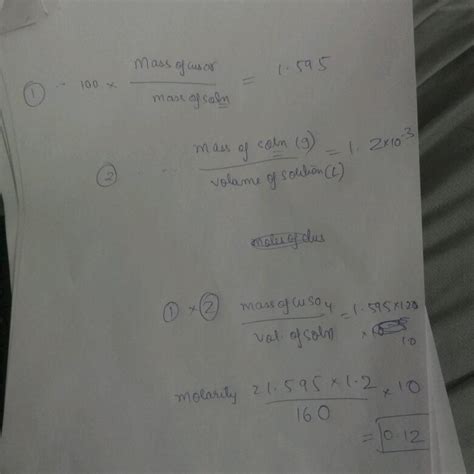 ① 100 × Mass of cuso4 / mass of soln = 1.595
② mass of soln (g) / volume of solution (L) = 1.2×10-3
Moles of
① × ② mass of cuso4 / vol. of soln = 1.595×120
× 10
molarity = 1.595 × 1.2 / 160 × 10
= 0.12